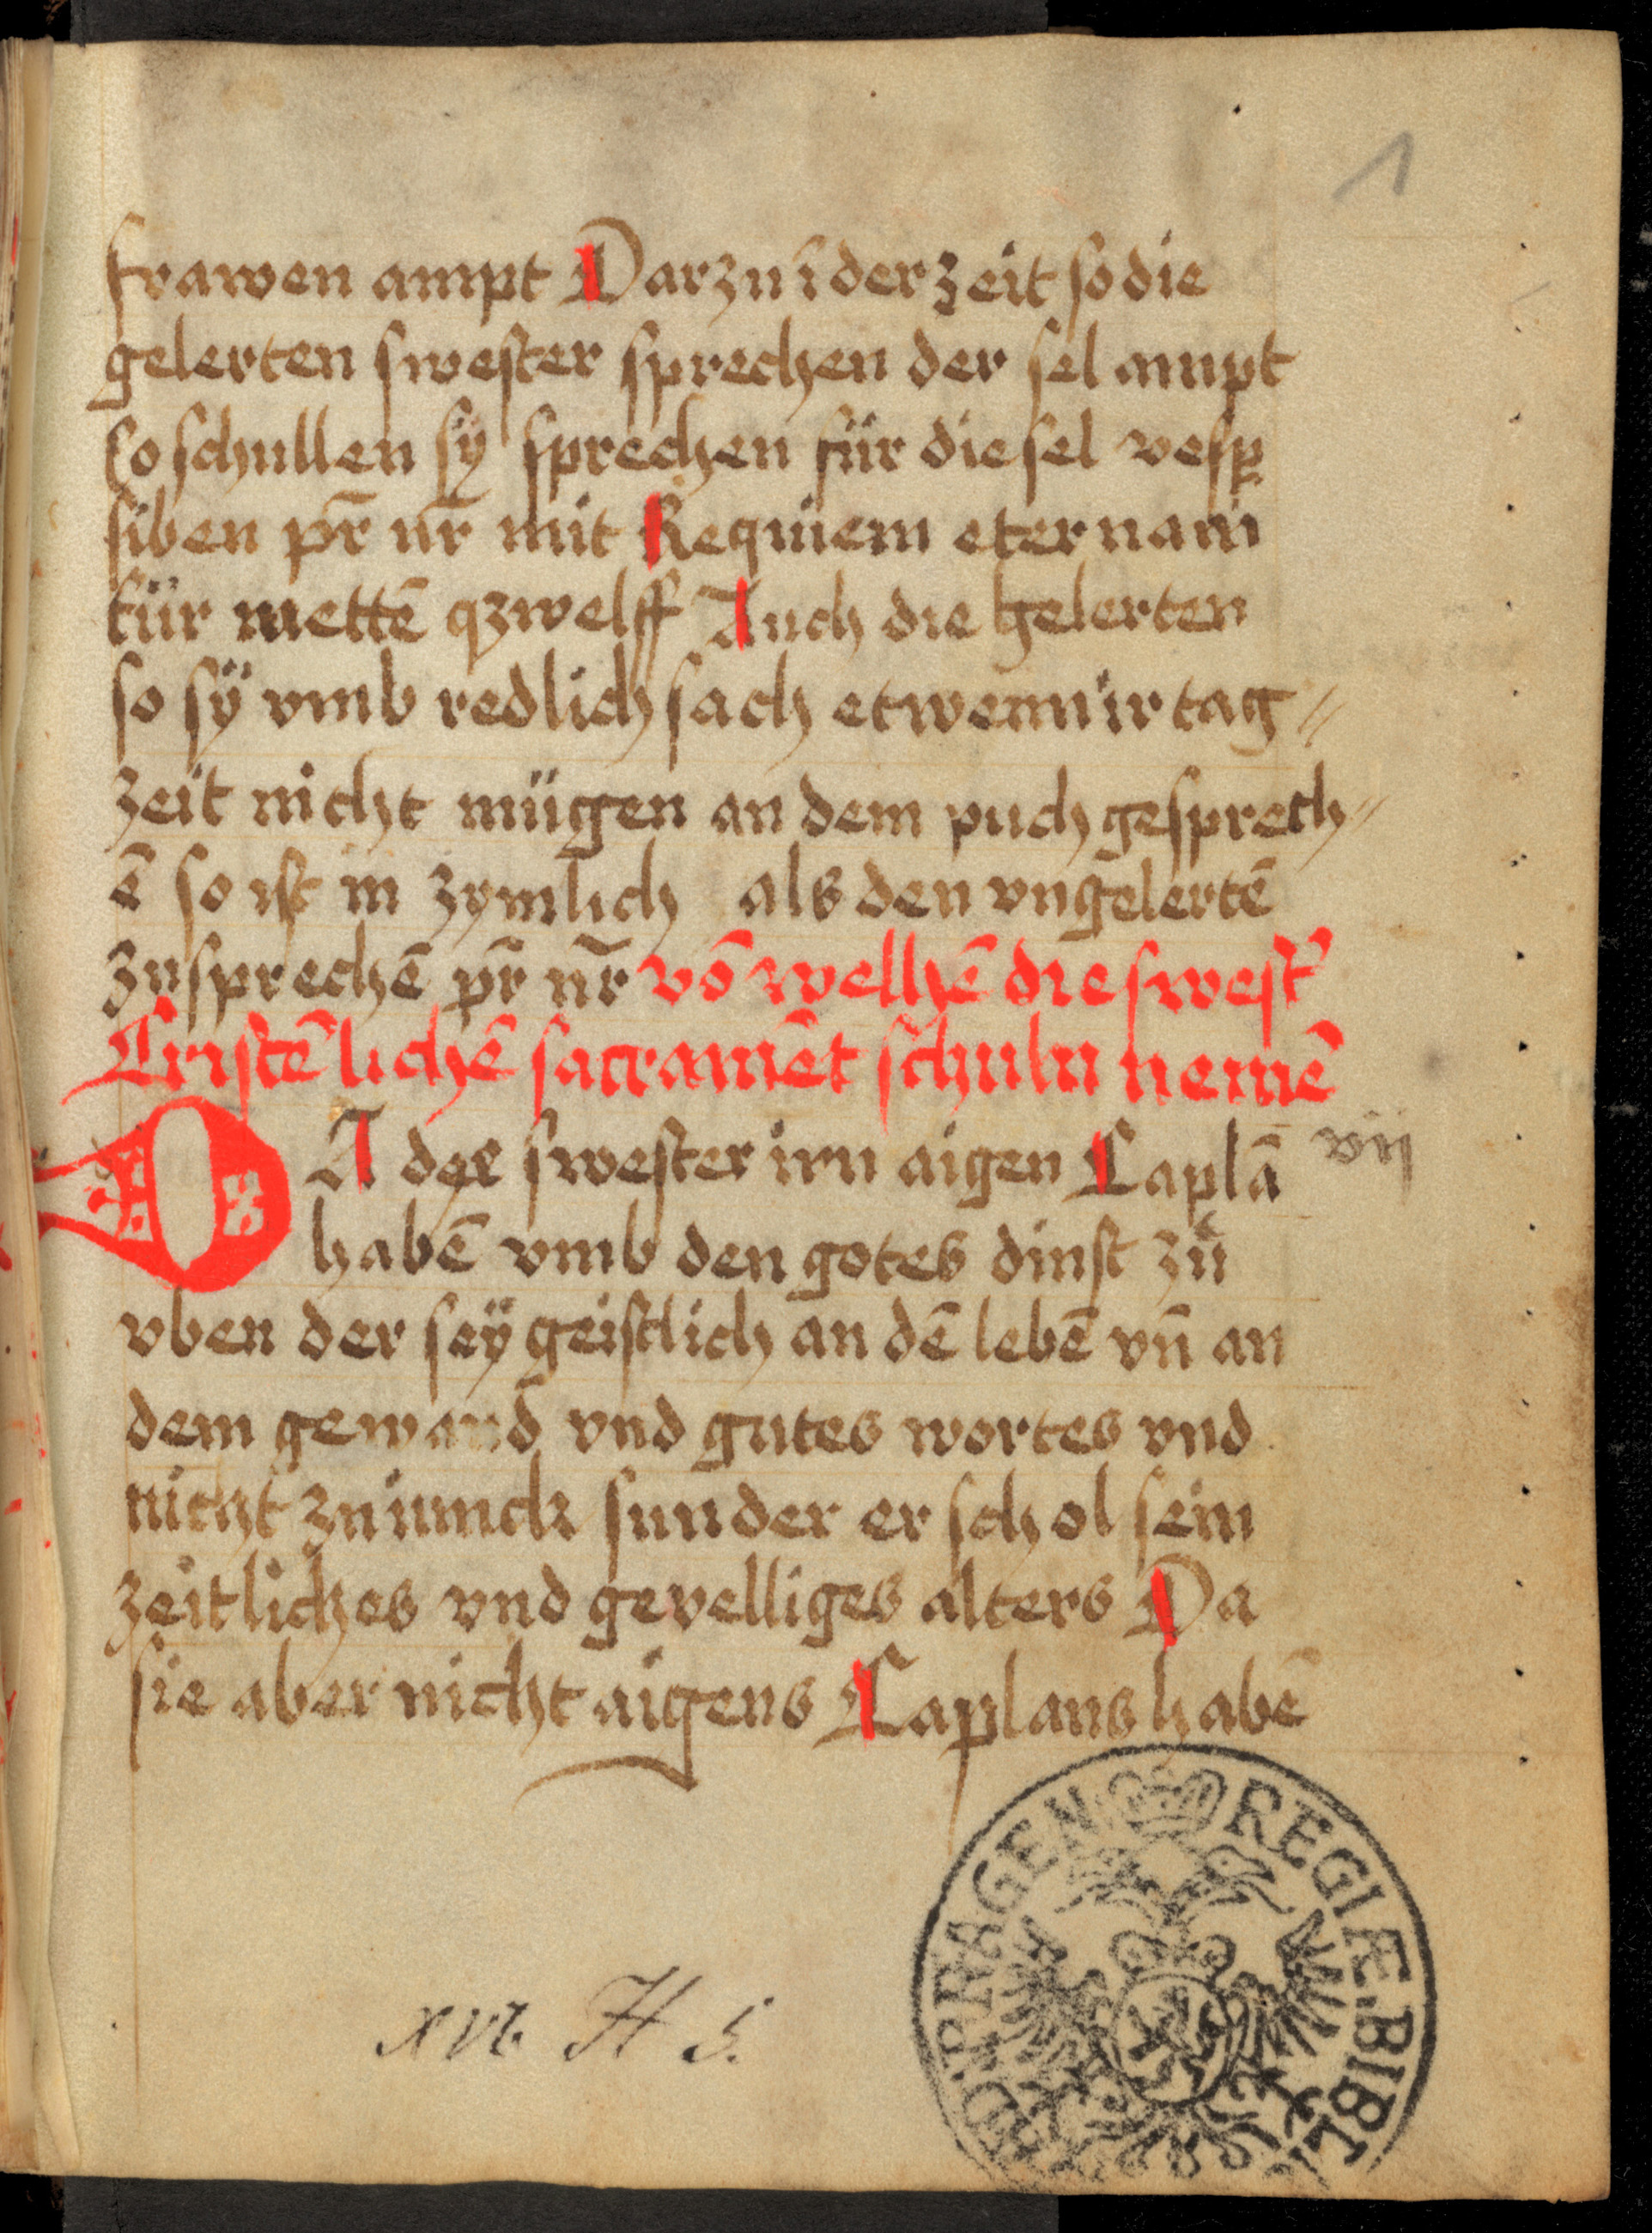 1
frawen ampt Darzu ī der zeit so die
gelerten swester sprechen der sel ampt
So schullen sÿ sprechen für die sel vesꝑ
siben pr̄ nr̄ mit Requiem eternam
für mettē zwelff Auch die gelerten
so sÿ vmb redlich sach etwenn ir tag⸗
zeit nicht mügen an dem puch gesprech⸗
ē so ist in zymlich als den vngelertē
zusprechē pr̄ nr̄ vō welhē die swest̾
Cristēlichē sacramēt schuln nemē
DA der swester irn aigen Caplā
vij
habē vmb den gotes dinst zů
vben der seÿ geistlich an dē lebē vn̄ an
dem gewand vnd gutes wortes vnd
nicht zu iunck sunder er schol sein
zeitliches vnd gevelliges alters Da
sie aber nicht aigens Caplans habē
xvi. H 5.
REGIÆ. BIBL
PRAGEN